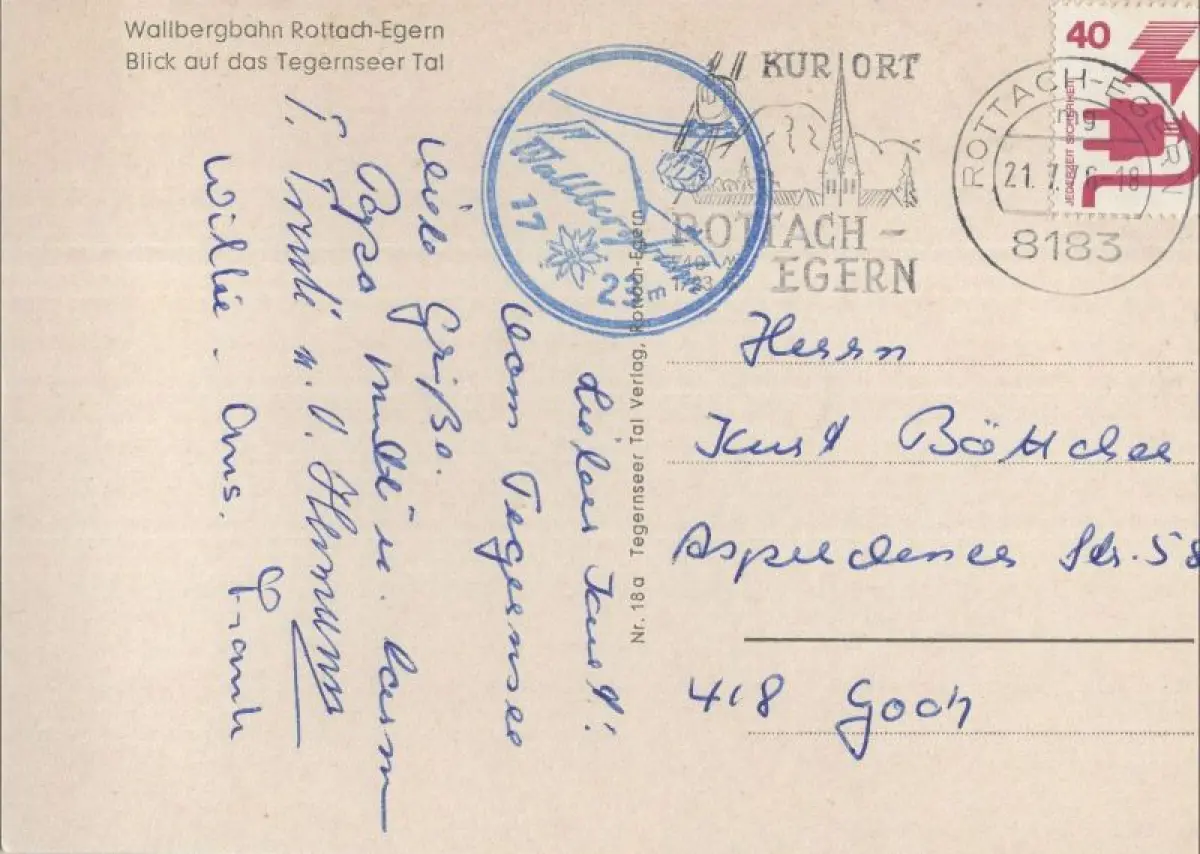 Wallbergbahn Rottach-Egern
Blick auf das Tegernseer Tal
Lieber Kurt!
Vom Tegernsee
viele Grüße.
Papa
T. Trudi u. O. Hermann
Willi - Oms. Frank
Wallbergbahn
17
22
KURORT
ROTTACH-
EGERN
ROTTACH-EGERN
mg
21. 7. 76 - 18
8183
40
JEDERZEIT SICHERHEIT
Nr. 18a Tegernseer Tal Verlag, Rottach-Egern
Herrn
Kurt Böttcher
Asperdener Str. 58
418 Goch